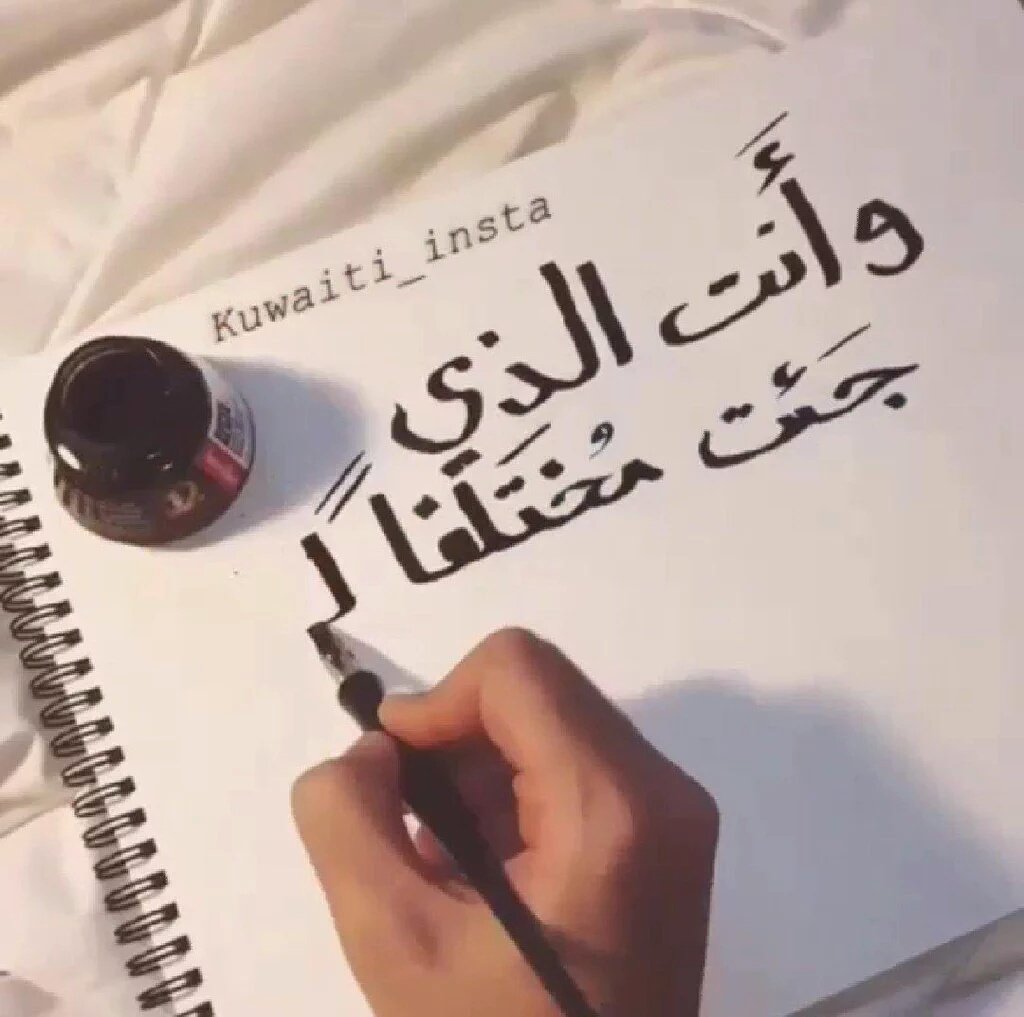 Kuwaiti_insta
وأَنت الذي
جَئت مُختَلفاً ل